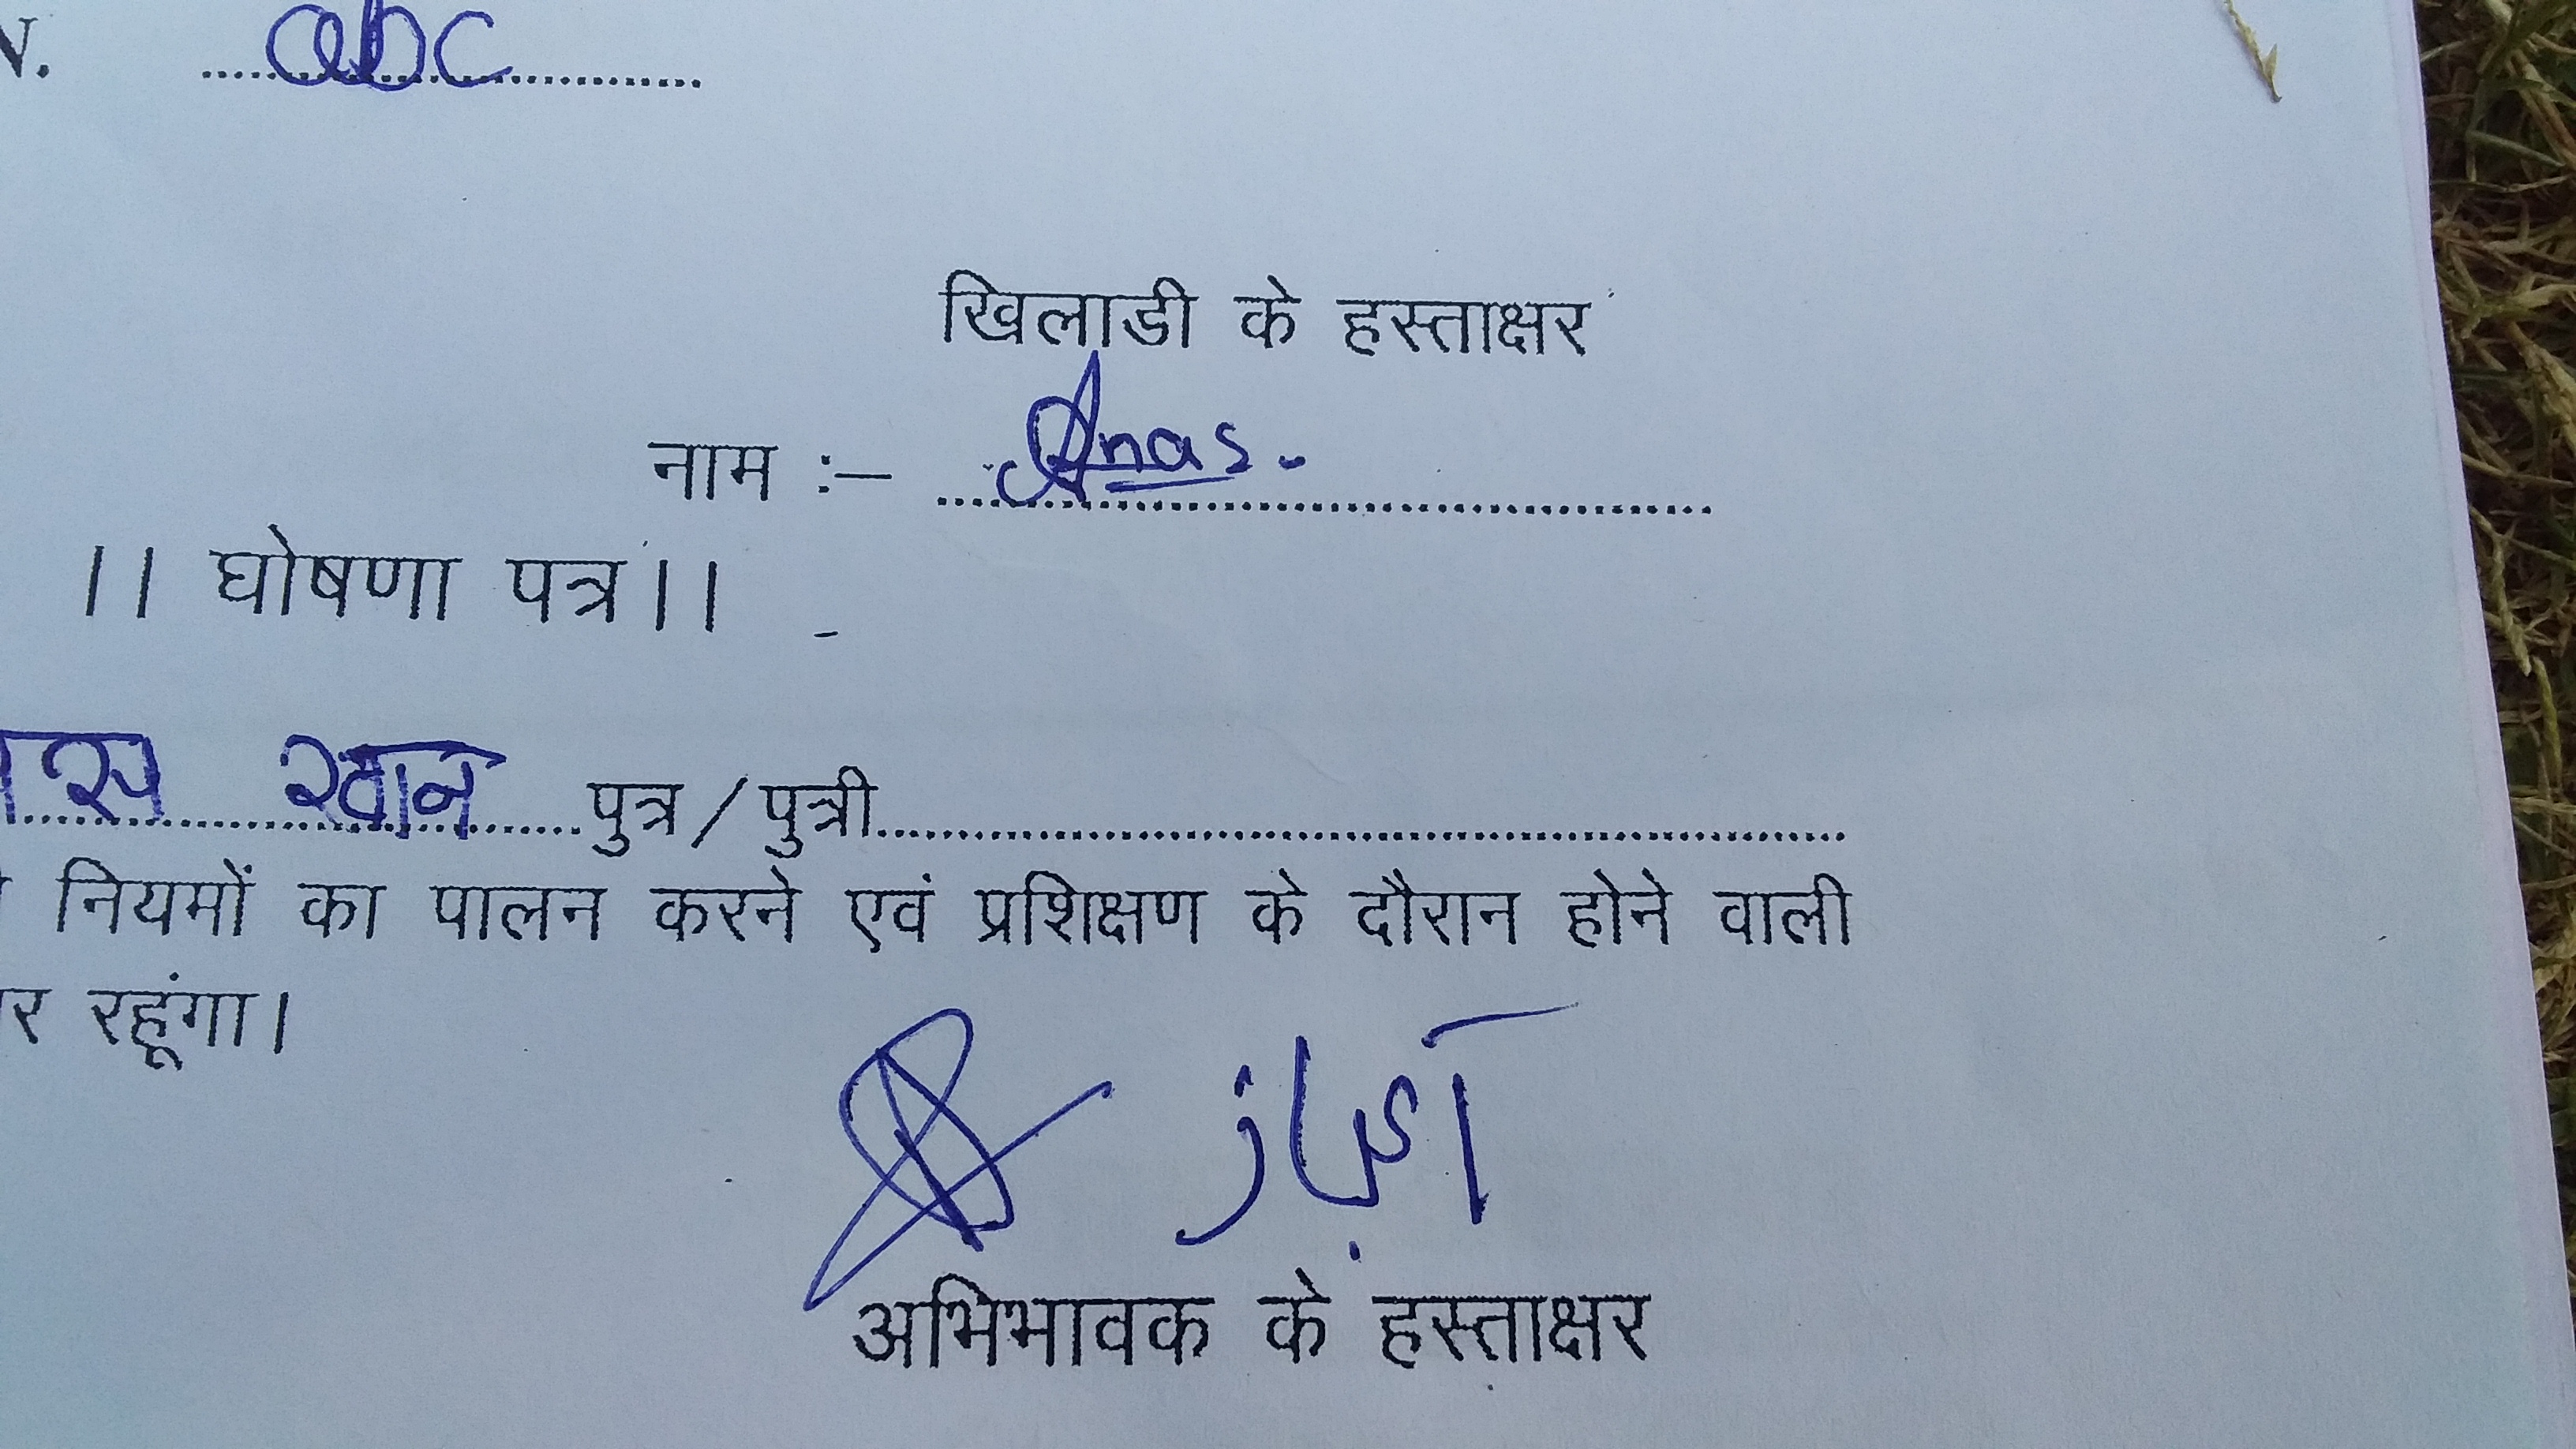 V. abc
खिलाडी के हस्ताक्षर
नाम :– Anas.
।। घोषणा पत्र।।
खान पुत्र/पुत्री
नियमों का पालन करने एवं प्रशिक्षण के दौरान होने वाली
र रहूंगा।
अभिभावक के हस्ताक्षर